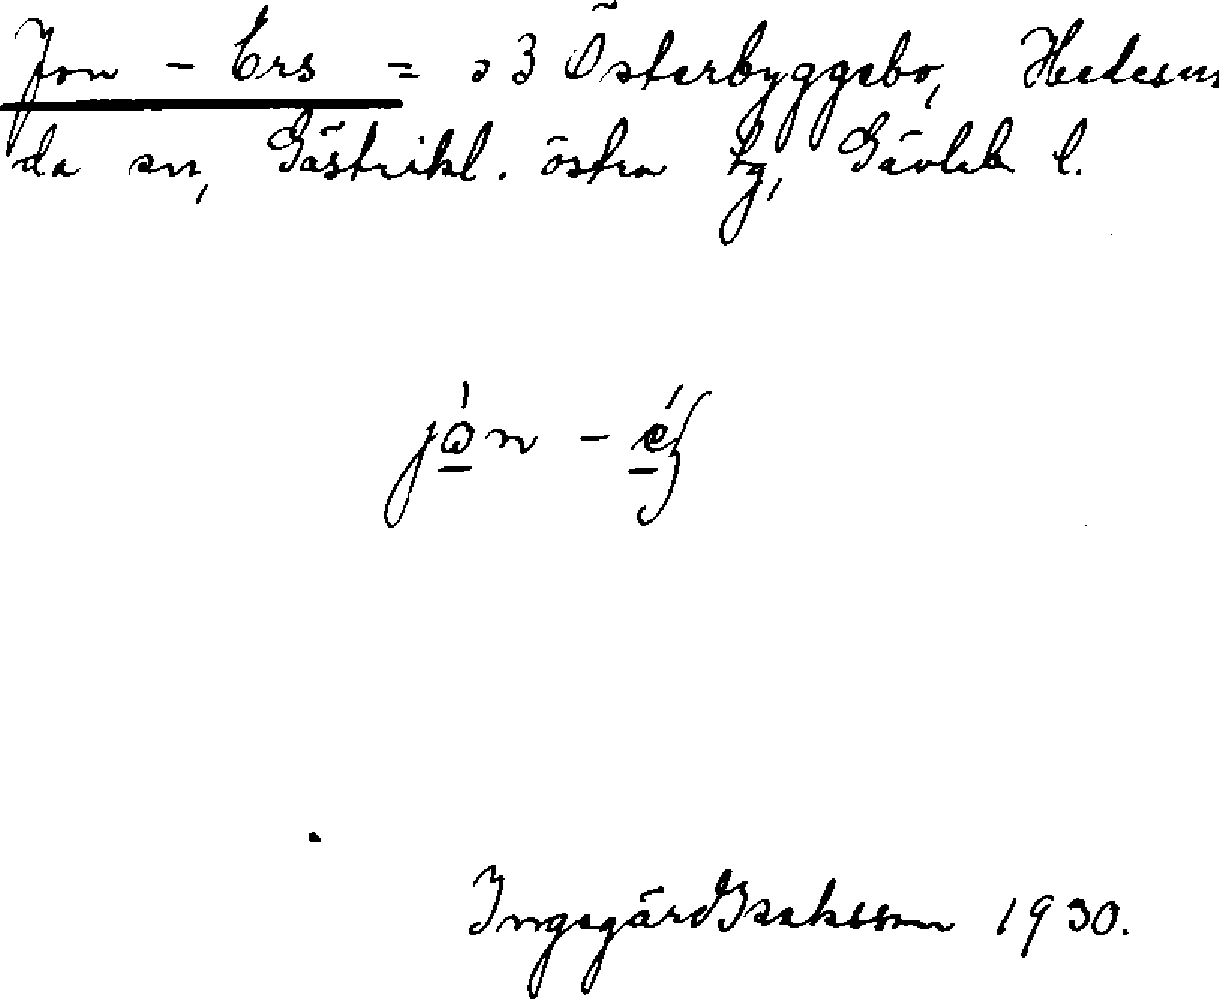 Jon - Ers = 33 Österbyggebo, Hedesun
da sn, Gästrikl. östra tg, Gävleb l.
jòn - é
Ingegärd Isaksson 1930.